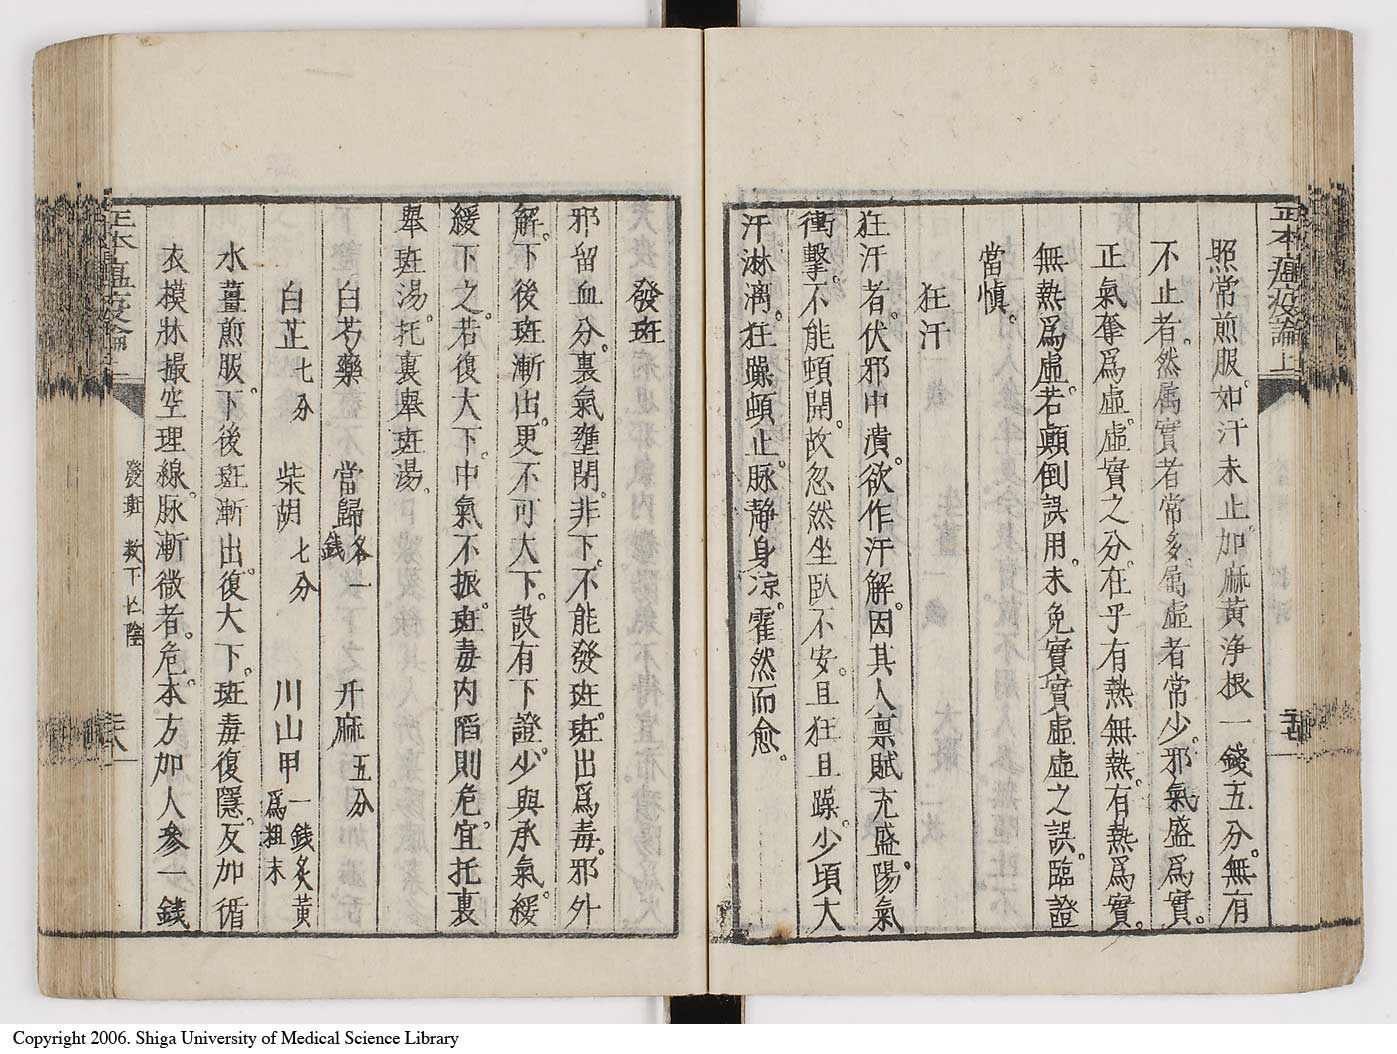 正本瘟疫論上
照常煎服。如汗未止。加麻黃淨根一錢五分。無有
不止者。然属實者常多。属虛者常少。邪氣盛爲實。
正氣奪爲虛。虛實之分。在乎有熱無熱。有熱爲實。
無熱爲虛。若顚倒誤用。未免實實虛虛之誤。臨證
當愼。
狂汗
狂汗者。伏邪中潰。欲作汗解。因其人禀賦充盛。陽氣
衝擊。不能頓開。故忽然坐臥不安。且狂且躁。少頃大
汗淋漓。狂躁頓止。脉靜身凉。霍然而愈。
發斑
邪留血分。裏氣壅閉。非下。不能發斑。斑出爲毒。邪外
解。下後斑漸出。更不可大下。設有下證。少與承氣。緩
緩下之。若復大下。中氣不振。斑毒内陷則危。宜托裏
擧斑湯。托裏擧斑湯。
白芍藥 當歸各一錢 升麻五分
白芷七分 柴胡七分 川山甲一錢炙黃爲粗末
水薑煎服。下後斑漸出。復大下。斑毒復隱。反加循
衣摸牀撮空理線。脉漸微者。危。本方加人參一錢
發斑 数下亡陰